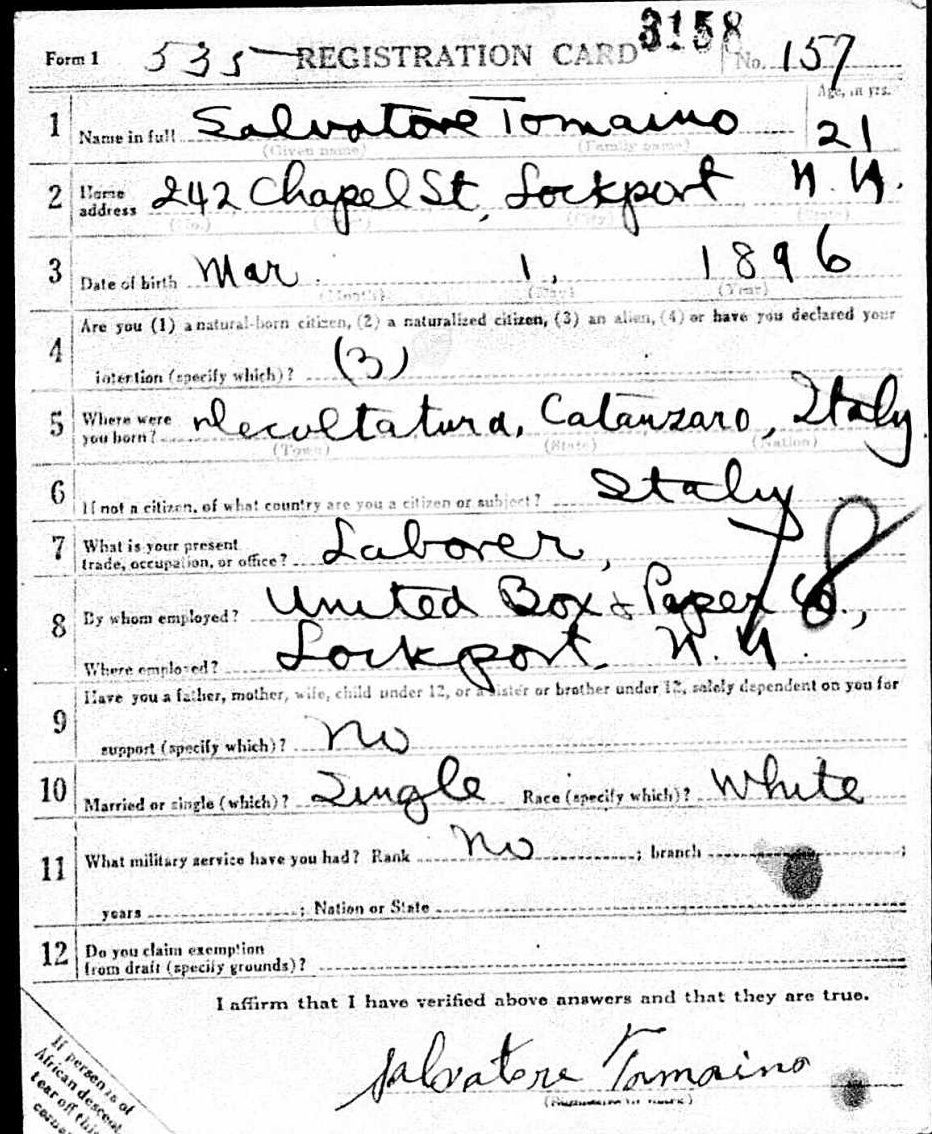 3158
Form 1 535 REGISTRATION CARD No. 157
Age, in yrs.
1 Name in full Salvatore Tomaino 21
(Given name) (Family name)
2 Home address 242 Chapel St, Lockport N. Y.
(No.) (City) (State)
3 Date of birth Mar. 1, 1896
(Month) (Day) (Year)
Are you (1) a natural-born citizen, (2) a naturalized citizen, (3) an alien, (4) or have you declared your
4 intention (specify which)? (3)
5 Where were you born? Decoltatura, Catanzaro, Italy
(Town) (State) (Nation)
6 If not a citizen, of what country are you a citizen or subject? Italy
7 What is your present trade, occupation, or office? Laborer, 8
8 By whom employed? United Box & Paper Co.,
Where employed? Lockport, N. Y.
Have you a father, mother, wife, child under 12, or a sister or brother under 12, solely dependent on you for
9 support (specify which)? No
10 Married or single (which)? Single Race (specify which)? White
11 What military service have you had? Rank No ; branch ;
years ; Nation or State
12 Do you claim exemption
from draft (specify grounds)?
I affirm that I have verified above answers and that they are true.
Salvatore Tomaino
(Signature or mark)
If person is of
African descent,
tear off this
corner